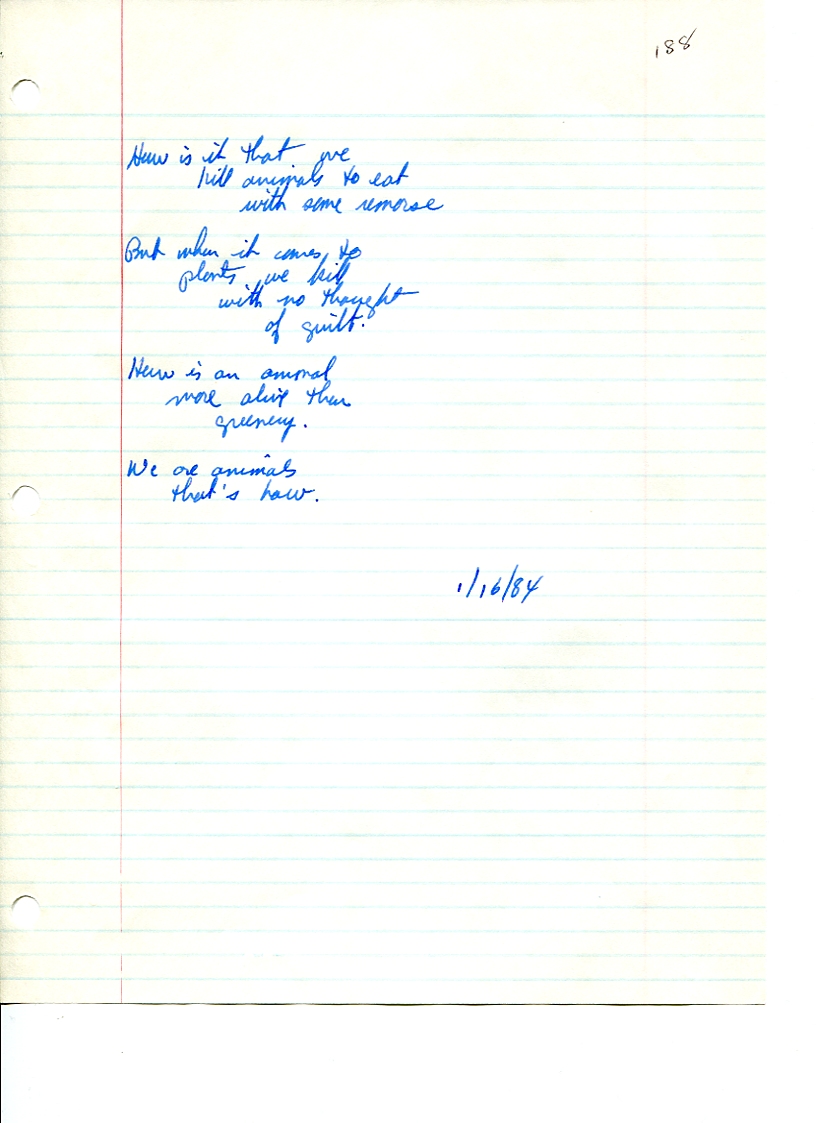 188
How is it that we
kill animals to eat
with some remorse
But when it comes to
plants we kill
with no thought
of guilt.
How is an animal
more alive than
greenery.
We are animals
that's how.
1/16/84